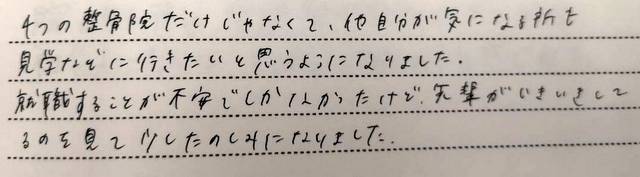 4つの整骨院だけじゃなくて、他自分が気になる所も
見学などに行きたいと思うようになりました。
就職することが不安でしかなかったけど、先輩がいきいきして
るのを見て少したのしみになりました。